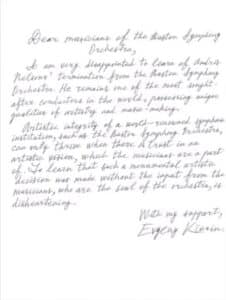 Dear musicians of the Boston Symphony
Orchestra,
I am very disappointed to learn of Andris
Nelsons' termination from the Boston Symphony
Orchestra. He remains one of the most sought-
after conductors in the world, possessing unique
qualities of artistry and music-making.
Artistic integrity of a world-renowned symphonic
institution, such as the Boston Symphony Orchestra,
can only thrive when there is trust in an
artistic vision, which the musicians are a part
of. To learn that such a monumental artistic
decision was made without the input from the
musicians, who are the soul of the orchestra, is
disheartening.
With my support,
Evgeny Kissin